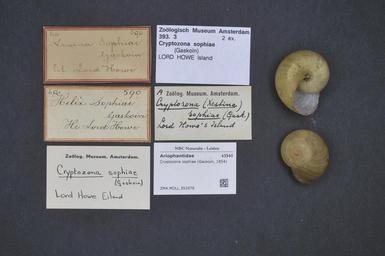 590
Sophiae
Gaskoin
Lord Howe
590
Helix Sophiae
Gaskoin
Lord Howe
Zoölog. Museum. Amsterdam.
Cryptozona sophiae
(Gaskoin)
Lord Howe Eiland
Zoölogisch Museum Amsterdam
393. 3 2 ex.
Cryptozona sophiae
(Gaskoin)
LORD HOWE Island
Zoölog. Museum. Amsterdam.
Cryptozona
sophiae (Gask.)
Lord Howe's Island
NBC Naturalis - Leiden
Ariophantidae
Cryptozona sophiae (Gaskoin, 1854)
ZMA.MOLL.